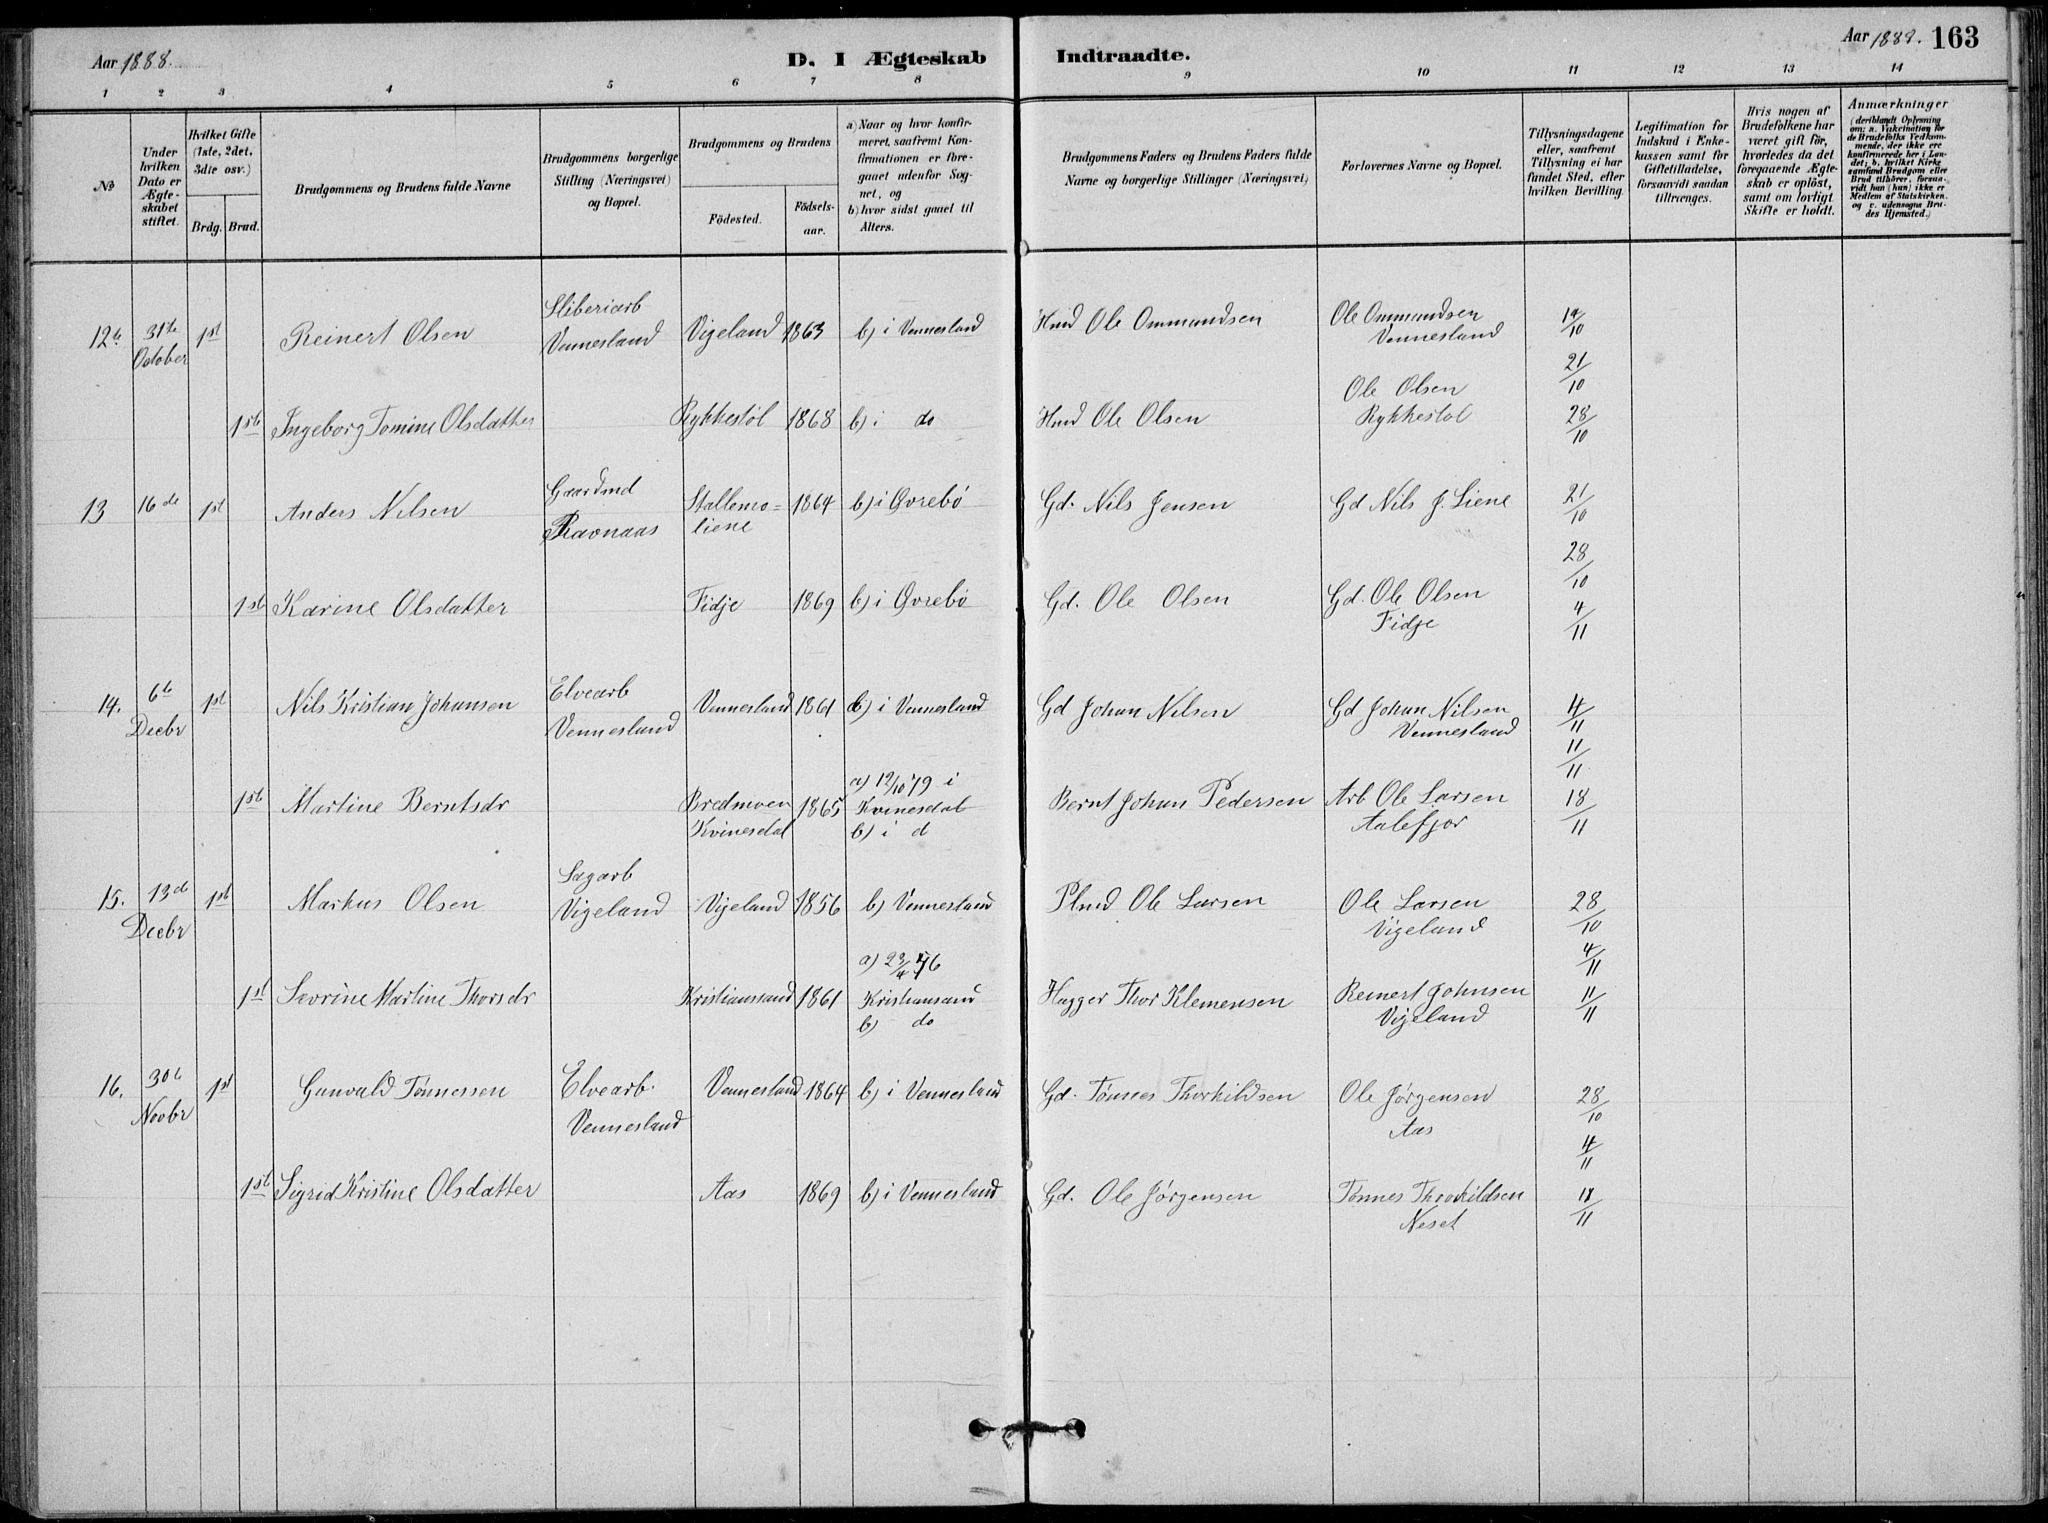 Aar 1888.
D. I Ægteskab Indtraadte.
Aar 1888. 163
1 2 3 4 5 6 7 8 9 10 11 12 13 14
№
Under hvilken Dato er Ægteskabet stiftet.
Hvilket Gifte (1ste, 2det, 3die osv.)
Brdg. Brud.
Brudgommens og Brudens fulde Navne
Brudgommens borgerlige Stilling (Næringsvei) og Bopæl.
Brudgommens og Brudens
Födested.
Födsels-aar.
a) Naar og hvor konfirmeret, saafremt Konfirmationen er foregaaet udenfor Sognet, og
b) hvor sidst gaaet til Alters.
Brudgommens Faders og Brudens Faders fulde Navne og borgerlige Stillinger (Næringsvei)
Forlovernes Navne og Bopæl.
Tillysningsdagene eller, saafremt Tillysning ei har fundet Sted, efter hvilken Bevilling.
Legitimation for Indskud i Enkekassen samt for Giftetilladelse, forsaavidt saadan tiltrænges.
Hvis nogen af Brudefolkene har været gift för, hvorledes da det foregaaende Ægteskab er oplöst, samt om lovligt Skifte er holdt.
Anmærkninger (deriblandt Oplysning om: a. Vakcination for de Brudefolks Vedkommende, der ikke ere konfirmerede her i Landet; b. hvilket Kirkesamfund Brudgom eller Brud tilhörer, forsaavidt han (hun) ikke er Medlem af Statskirken, og c. udensogns Brudes Hjemsted.)
12 31te October 1st Reinert Olsen Sliberiarb Vennesland Vigeland 1863 b) i Vennesland Hmd Ole Ommundsen Ole Ommundsen Vennesland 19/10
21/10
1st Ingeborg Tomine Olsdatter Rykkestöl 1868 b) i do Hmd Ole Olsen Ole Olsen Rykkestöl 28/10
13 16de 1st Anders Nilsen Gaardmd Ravnaas Stallemo=liene 1864 b) i Øvrebö Gd. Nils Jensen Gd Nils J. Liene 21/10
28/10
1st Karine Olsdatter Fidje 1869 b) i Øvrebö Gd. Ole Olsen Gd. Ole Olsen Fidje 4/11
14. 6te Decbr 1st Nils Kristian Johansen Elvearb Vennesland Vennesland 1861 b) i Vennesland Gd Johan Nilsen Gd Johan Nilsen Vennesland 4/11
11/11
1st Martine Berntsdr Bredmoen Kvinesdal 1865 a) 12/10 79 i Kvinesdal b) i d Bernt Johan Pedersen Arb Ole Larsen Aalefjær 18/11
15. 13d Decbr 1st Markus Olsen Sagarb Vigeland Vigeland 1856 b) Vennesland Plmd Ole Larsen Ole Larsen Vigeland 28/10
4/11
1st Sevrine Martine Thorsdr Kristianssand 1861 a) 23/4 76 Kristiansand b) do Hugger Thor Klemensen Reinert Johnsen Vigeland 11/11
16. 30te Novbr 1st Gunvald Tönnessen Elvearb. Vennesland Vennesland 1864 b) i Vennesland Gd. Tönnes Thorkildsen Ole Jörgensen Aas 28/10
4/11
1st Sigrid Kristine Olsdatter Aas 1869 b) i Vennesland Gd. Ole Jörgensen Tönnes Thorkildsen Neset 11